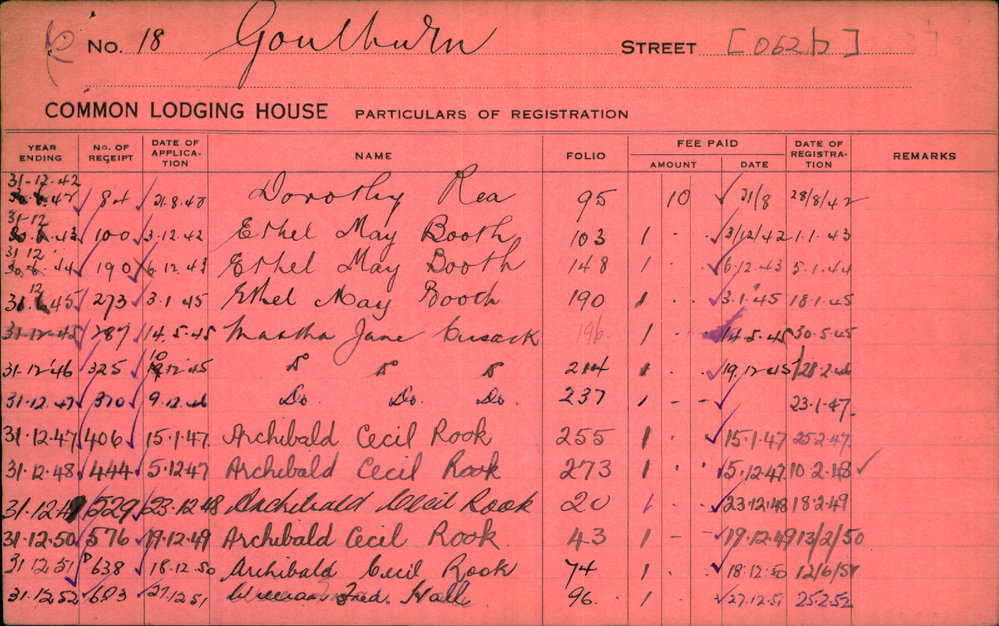 No. 18 Goulburn STREET [062b]
COMMON LODGING HOUSE PARTICULARS OF REGISTRATION
YEAR ENDING No. OF RECEIPT DATE OF APPLICA-TION NAME FOLIO FEE PAID AMOUNT DATE DATE OF REGISTRA-TION REMARKS
31-12-42 84 21.8.42 Dorothy Rea 95 10 21/8 28/8/42
31-12 43 100 3.12.42 Ethel May Booth 103 1 . . 3/12/42 1.1.43
31 12 44 190 6.12.43 Ethel May Booth 148 1 . . 6.12.43 5.1.44
12 45 273 3.1.45 Ethel May Booth 190 1 . . 3.1.45 18.1.45
31-12-45 287 14.5.45 Martha Jane Cusack 196 1 . . 14.5.45 30.5.45
31-12-46 325 12.45 Do Do Do 214 1 . . 19.12.45 28.2.46
31.12.47 370 9.12.46 Do. Do. Do. 237 1 - - 23.1.47.
31.12.47 406 15.1.47. Archibald Cecil Rook 255 1 . 15.1.47 25.2.47.
31.12.48 444 5.12.47 Archibald Cecil Rook 273 1 . . 5.12.47 10.2.48 ✓
31.12.49 529 23.12.48 Archibald Cecil Rook 20 1 . . 23.12.48 18.2.49
31.12.50 576 19.12.49 Archibald Cecil Rook. 43 1 - - 19.12.49 13/2/50
31.12.51 638 18.12.50 Archibald Cecil Rook 74 1 . . 18.12.50 12/6/51
31.12.52 683 27.12.51 William Fred. Hall 96. 1 . . 27.12.51 25.2.52